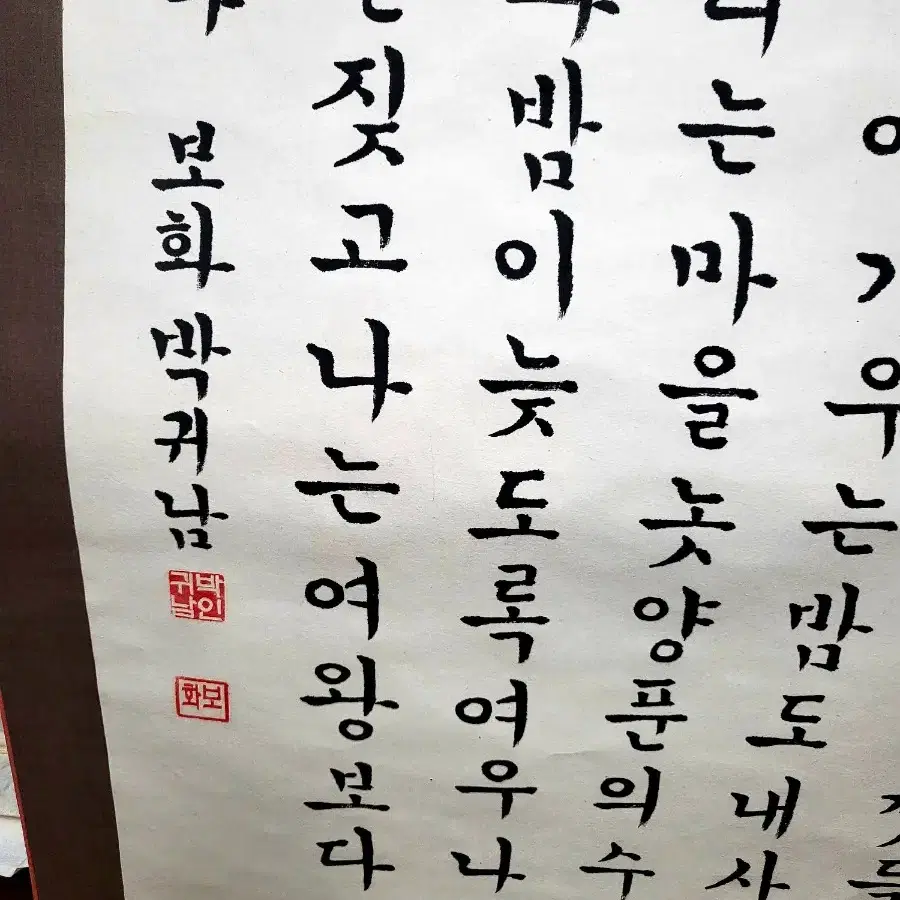 우는밤도내사
는마을놋양푼의수
밤이늦도록여우나
짖고나는여왕보다
보화 박귀남
박인귀남
보화